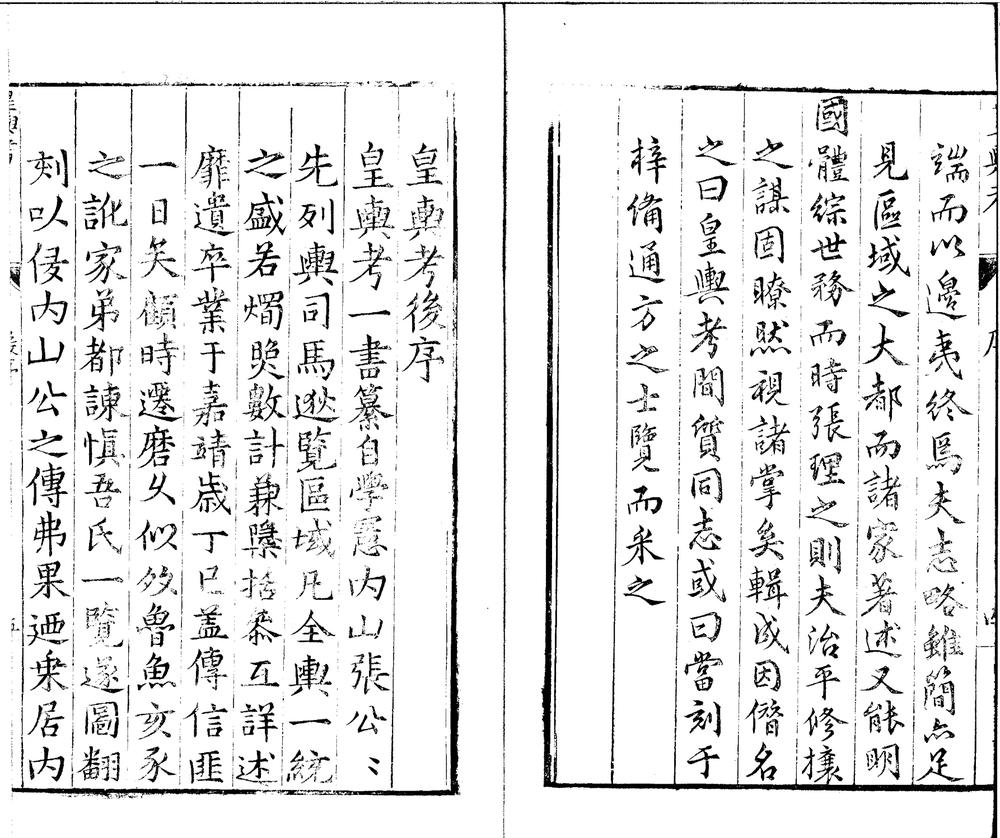 端而以邊夷終焉夫志略雖簡亦足
見區域之大都而諸家著述又能明
國體綜世務而時張理之則夫治平修攘
之謀固瞭然視諸掌矣輯成因僭名
之曰皇輿考間質同志或曰當刻于
梓備通方之士覽而采之
皇輿考後序
皇輿考一書纂自學憲内山張公〻
先列輿司馬逖覽區域凡全輿一統
之盛若燭照數計兼檃括叅互詳述
靡遺卒業于嘉靖歲丁巳盖傳信匪
一日矣顧時遷磨久似伩魯魚亥豕
之訛家弟都諫慎吾氏一覽遂圖翻
刻以侵内山公之傳弗果迺乗居内